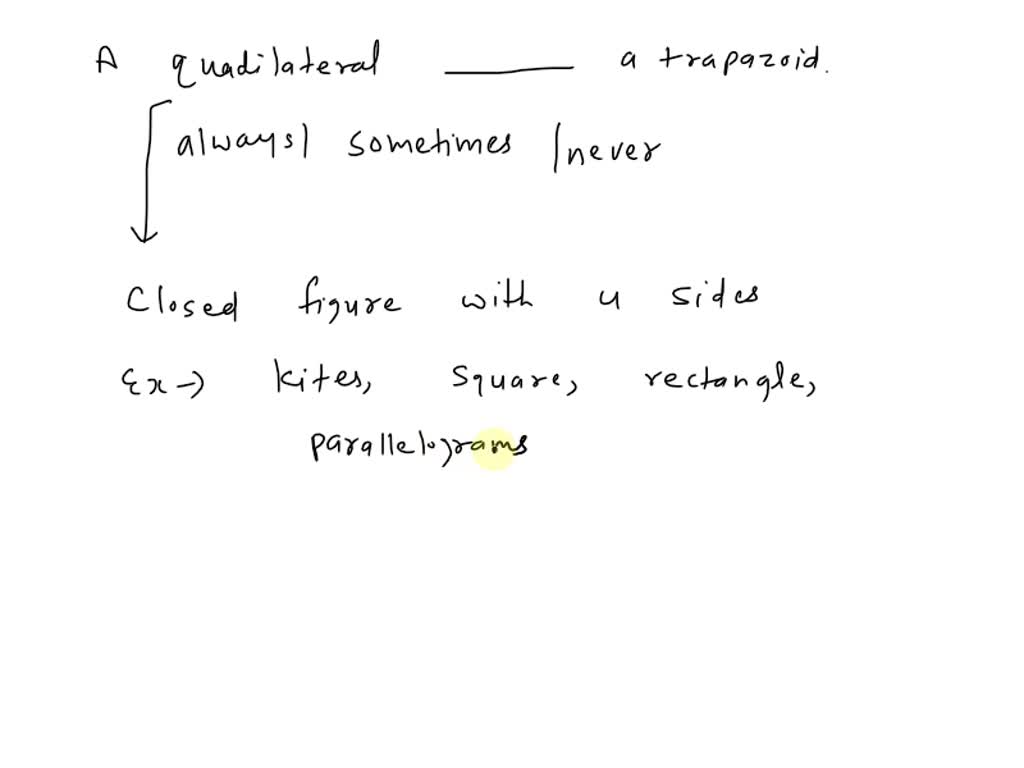 A quadilateral ______ a trapazoid.
always| sometimes |never
Closed figure with 4 sides
Ex → kites, square, rectangle,
parallelograms